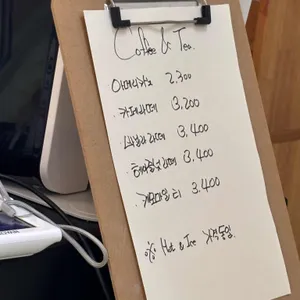 Coffee & Tea.
아메리카노 2,300
·카페라떼 3,200
·바닐라라떼 3,400
·헤이즐넛라떼 3,400
·캐모마일 티 3,400
※ Hot & Ice 가격동일